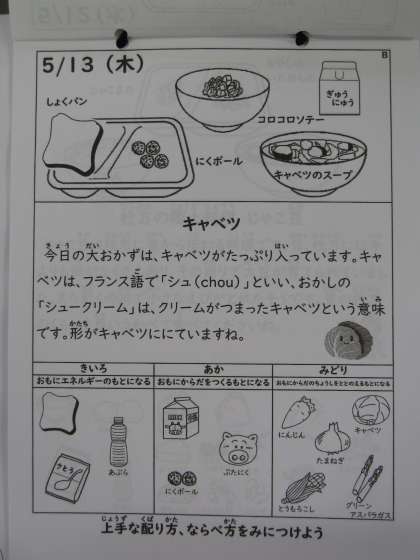 5/13（木）
B
しょくパン
コロコロソテー
ぎゅう
にゅう
にくボール
キャベツのスープ
キャベツ
今日の大おかずは、キャベツがたっぷり入っています。キャ
ベツは、フランス語で「シュ（chou）」といい、おかしの
「シュークリーム」は、クリームがつまったキャベツという意味
です。形がキャベツににていますね。
きいろ
あか
みどり
おもにエネルギーのもとになる
おもにからだをつくるもとになる
おもにからだのちょうしをととのえるもとになる
あぶら
さとう
ぶたにく
にくボール
にんじん
キャベツ
たまねぎ
とうもろこし
グリーン
アスパラガス
上手な配り方、ならべ方をみにつけよう